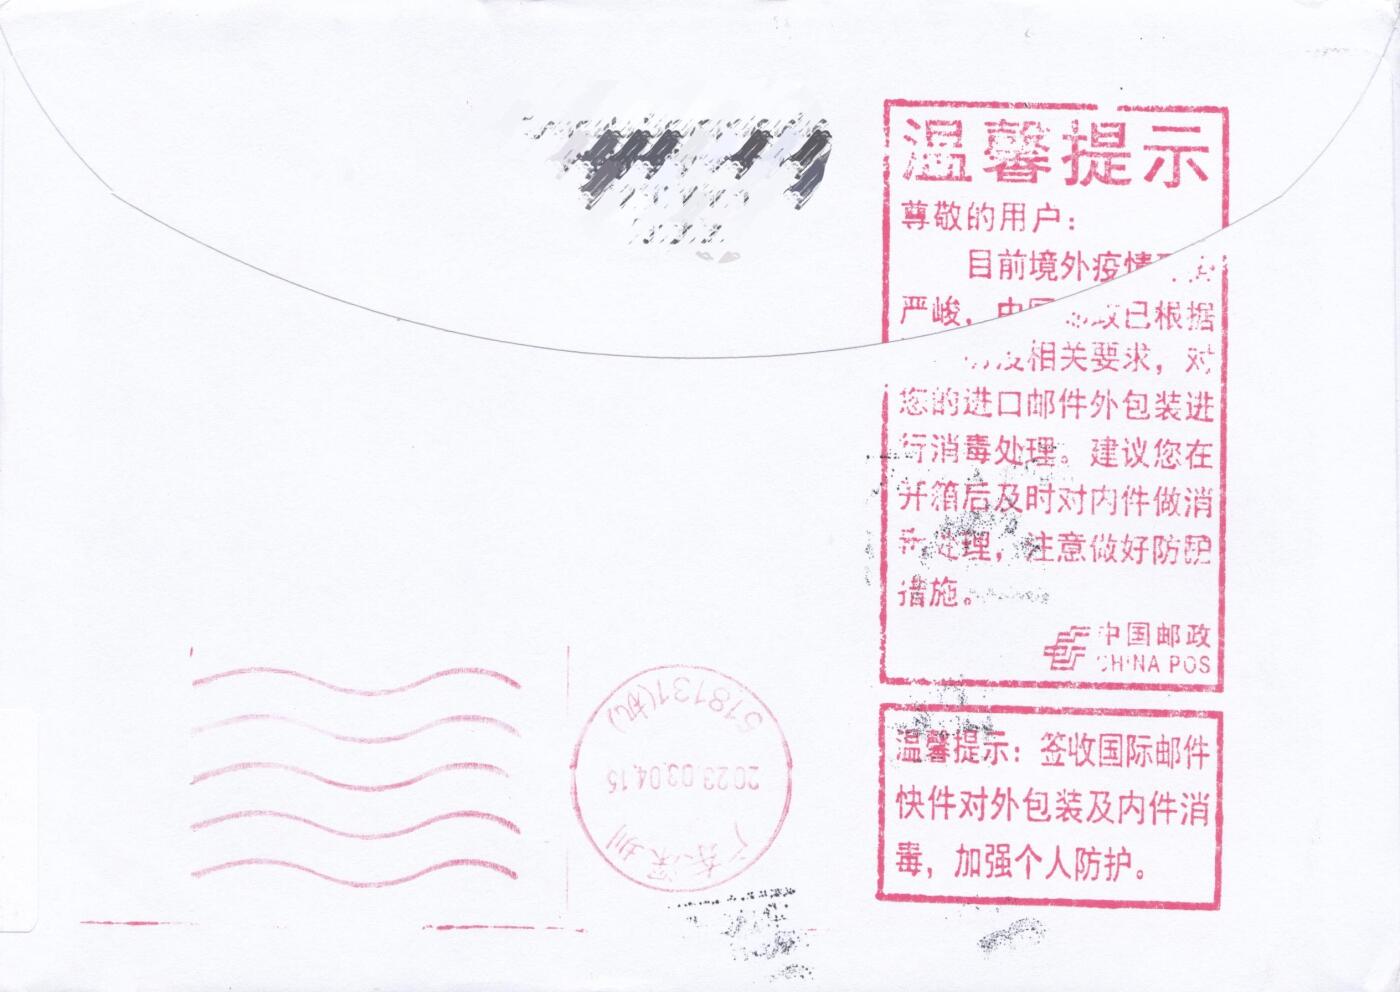 温馨提示
尊敬的用户：
目前境外疫情
严峻，中国 政已根据
相关要求，对
您的进口邮件外包装进
行消毒处理。建议您在
开箱后及时对内件做消
处理，注意做好防护
措施。
中国邮政
CHINA POS
温馨提示：签收国际邮件
快件对外包装及内件消
毒，加强个人防护。
518131(机)
2023.03.04.15
广东深圳